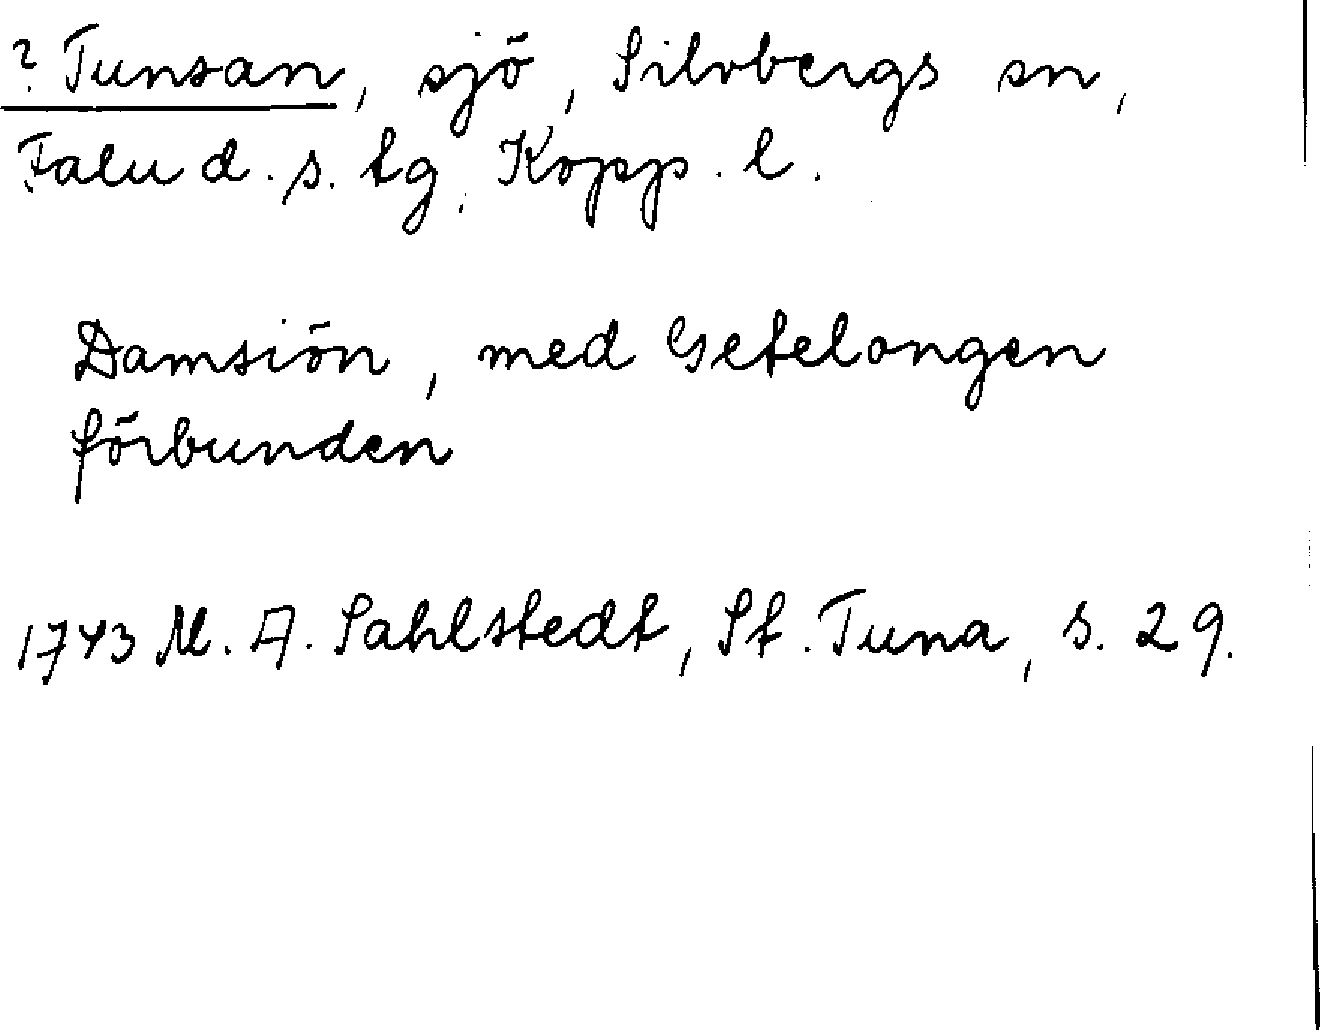 ? Tunsan, sjö, Silvbergs sn,
Falu d. s. tg, Kopp. l.
Damsiön, med Getelongen
förbunden
1743 M. A. Sahlstedt, St. Tuna, s. 29.